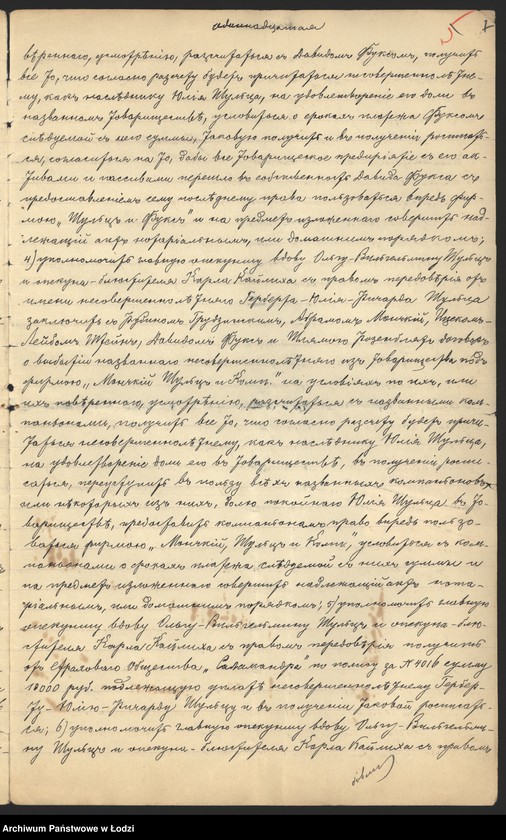 одиннадцатая
вѣреннаго, усмотрѣнію, разсчитаться съ Давидомъ Фуксомъ, получить
все то, что согласно разсчету будетъ причитаться несовершеннолѣтне-
му, какъ наслѣднику Юлія Шульца, на удовлетвореніе его доли въ
названномъ товариществѣ, условиться о срокахъ платежа Фуксомъ
слѣдуемой съ него суммы, таковую получить и въ полученіи росписать-
ся, согласиться на то, дабы все товарищеское предпріятіе съ его ак-
тивами и пассивами перешло въ собственность Давида Фукса и съ
предоставленіемъ сему послѣднему права пользоваться впредь фир-
мою „Шульцъ и Фуксъ" и на предметъ изложеннаго совершить над-
лежащій актъ нотаріальнымъ, или домашнимъ порядкомъ;
4) уполномочить главную опекуншу вдову Ольгу-Вильгельмину Шульцъ
и опекуна-блюстителя Карла Каймиха съ правомъ передовѣрія отъ
имени несовершеннолѣтняго Герберта-Юлія-Ричарда Шульца
заключить съ Рубиномъ Грудзинскимъ, Абрамомъ Мончкій, Ицекомъ-
Лейбомъ Штейнъ, Давидомъ Фуксъ и Шлямою Розенблятъ договоръ
о выбытіи названнаго несовершеннолѣтняго изъ товарищества подъ
фирмою „Мончкій Шульцъ и Комп." на условіяхъ по ихъ, или
ихъ повѣреннаго, усмотрѣнію, разсчитаться съ названными ком-
паніонами, получить все то, что согласно разсчету будетъ причи-
таться несовершеннолѣтнему, какъ наслѣднику Юлія Шульца,
на удовлетвореніе доли его въ товариществѣ, въ полученіи роспи-
саться, переуступить въ пользу всѣхъ названныхъ компаніоновъ,
или нѣкоторыхъ изъ нихъ, долю покойнаго Юлія Шульца въ то-
вариществѣ, предоставить компаніонамъ право впредь пользо-
ваться фирмою „Мончкій, Шульцъ и Комп.", условиться съ ком-
паніонами о срокахъ платежа слѣдуемой съ нихъ суммы и
на предметъ изложеннаго совершить надлежащій актъ нота-
ріальнымъ, или домашнимъ порядкомъ; 5) уполномочить главную
опекуншу вдову Ольгу-Вильгельмину Шульцъ и опекуна-блю-
стителя Карла Каймиха съ правомъ передовѣрія получить
отъ Страхового Общества „Саламандра" по полису за N 4016 сумму
18000 руб. подлежащую уплатѣ несовершеннолѣтнему Гербер-
ту-Юлію-Ричарду Шульцу и въ полученіи таковой росписать-
ся; 6) уполномочить главную опекуншу вдову Ольгу-Вильгельми-
ну Шульцъ и опекуна-блюстителя Карла Каймиха съ правомъ
Archiwum Państwowe w Łodzi